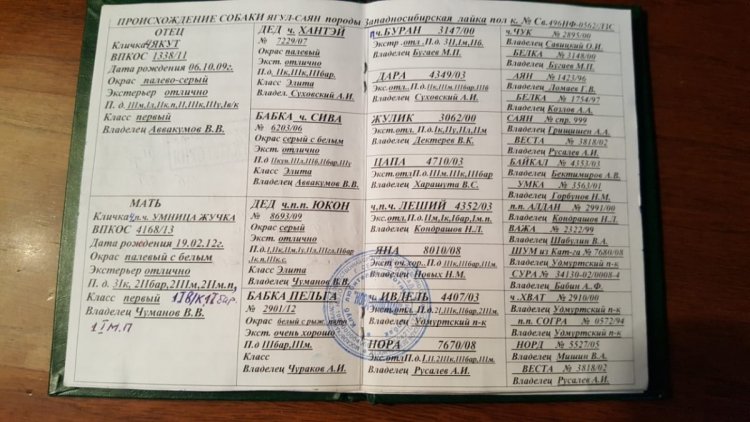 ПРОИСХОЖДЕНИЕ СОБАКИ ЯГУЛ-САЯН породы Западносибирская лайка пол к. № Св.496НФ-0562/13С
ОТЕЦ
Кличка ч.ЯКУТ
ВПКОС 1338/11
Дата рождения 06.10.09г.
Окрас палево-серый
Экстерьер отлично
Класс первый
Владелец Аввакумов В.В.
МАТЬ
Кличка УМНИЦА ЖУЧКА
ВПКОС 4168/13
Дата рождения 19.02.12г.
Окрас палевый с белым
Экстерьер отлично
П. д. 3Iк, 2IIбар,2IIIм,2IIм.п,
Класс первый
Владелец Чуманов В.В.
1 I М.П
ДЕД ч. ХАНТЭЙ
№ 7229/07
Окрас палевый
Экст. отлично
П.д. Iк,IIк,IIIбар.
Класс Элита
Владел. Суховский А.И.
БАБКА ч. СИВА
№ 6203/06
Окрас серый с белым
Экст. отлично
Класс Элита
Владелец Аввакумов В.В.
ДЕД ч.п.п. ЮКОН
№ 8693/09
Окрас серый
Экст. отлично
Класс Элита
Владелец Чуманов В.В.
БАБКА ПЕЛЬГА
№ 2901/12
Окрас белый с рыж.
Экст. очень хорошо
П.д IIIбар,IIIм.
Класс
Владелец Чураков А.И.
ч.БУРАН 3147/00
Экстр.отл. П.д. 3II,Iм,IIб.
Владелец Бугаев М.П.
ДАРА 4349/03
Владелец Суховский А.И.
ЖУЛИК 3062/00
Экст.отл. П.д.Iк,Iу,IIл,IIм
Владелец Дектерев В.К.
ЦАПА 4710/03
Владелец Харашута В.С.
ч.п.ч. ЛЕШИЙ 4352/03
Владелец Кондрашов Н.Л.
ЯНА 8010/08
Экст оч.хор.
Владелец Новых Н.М.
ч. ИВДЕЛЬ 4407/03
Владелец Удмуртский п-к
НОРА 7670/08
Владелец Русалев А.И.
ч. ЧУК № 2895/00
Владелец Савицкий О.И.
БЕЛКА № 3148/00
Владелец Бугаев М.П.
АЯН № 1423/96
Владелец Ломаев Г.В.
БЕЛКА № 1754/97
Владелец Козлов А.А.
САЯН № спр. 999
Владелец Грищишен А.А.
ВЕСТА № 3818/02
Владелец Русалев А.И.
БАЙКАЛ № 4353/03
Владелец Бектимиров А.В.
УМКА № 3563/01
Владелец Горбунов Н.М.
п.п. АЛДАН № 2991/00
Владелец Кондрашов Н.Л.
ВАЖА № 2322/99
Владелец Шабулин В.А.
ШУМ из Кат-га № 7680/08
Владелец Удмуртский п-к
СУРА № 34130-02/0008-4
Владелец Бабин А.Ф.
ч.ХВАТ № 2910/00
Владелец Удмуртский п-к
п.п. СОГРА № 0572/94
Владелец Удмуртский п-к
НОРД № 5527/05
Владелец Мишин В.А.
ВЕСТА № 3818/02
Владелец Русалев А.И.